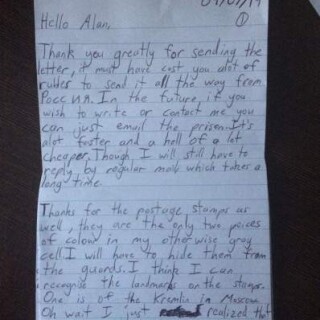 04/07/19
①
Hello Alan,
Thank you greatly for sending the
letter, it must have cost you alot of
rubles to send it all the way from
Россия. In the future, if you
wish to write or contact me you
can just email the prison. It's
alot faster and a hell of a lot
cheaper. Though, I will still have to
reply by regular mail which takes a
long time.
Thanks for the postage stamps as
well, they are the only two peices
of colour in my otherwise grey
cell. I will have to hide them from
the guards. I think I can
recognise the landmarks on the stamps.
One is of the Kremlin in Moscow.
Oh wait I just realized that